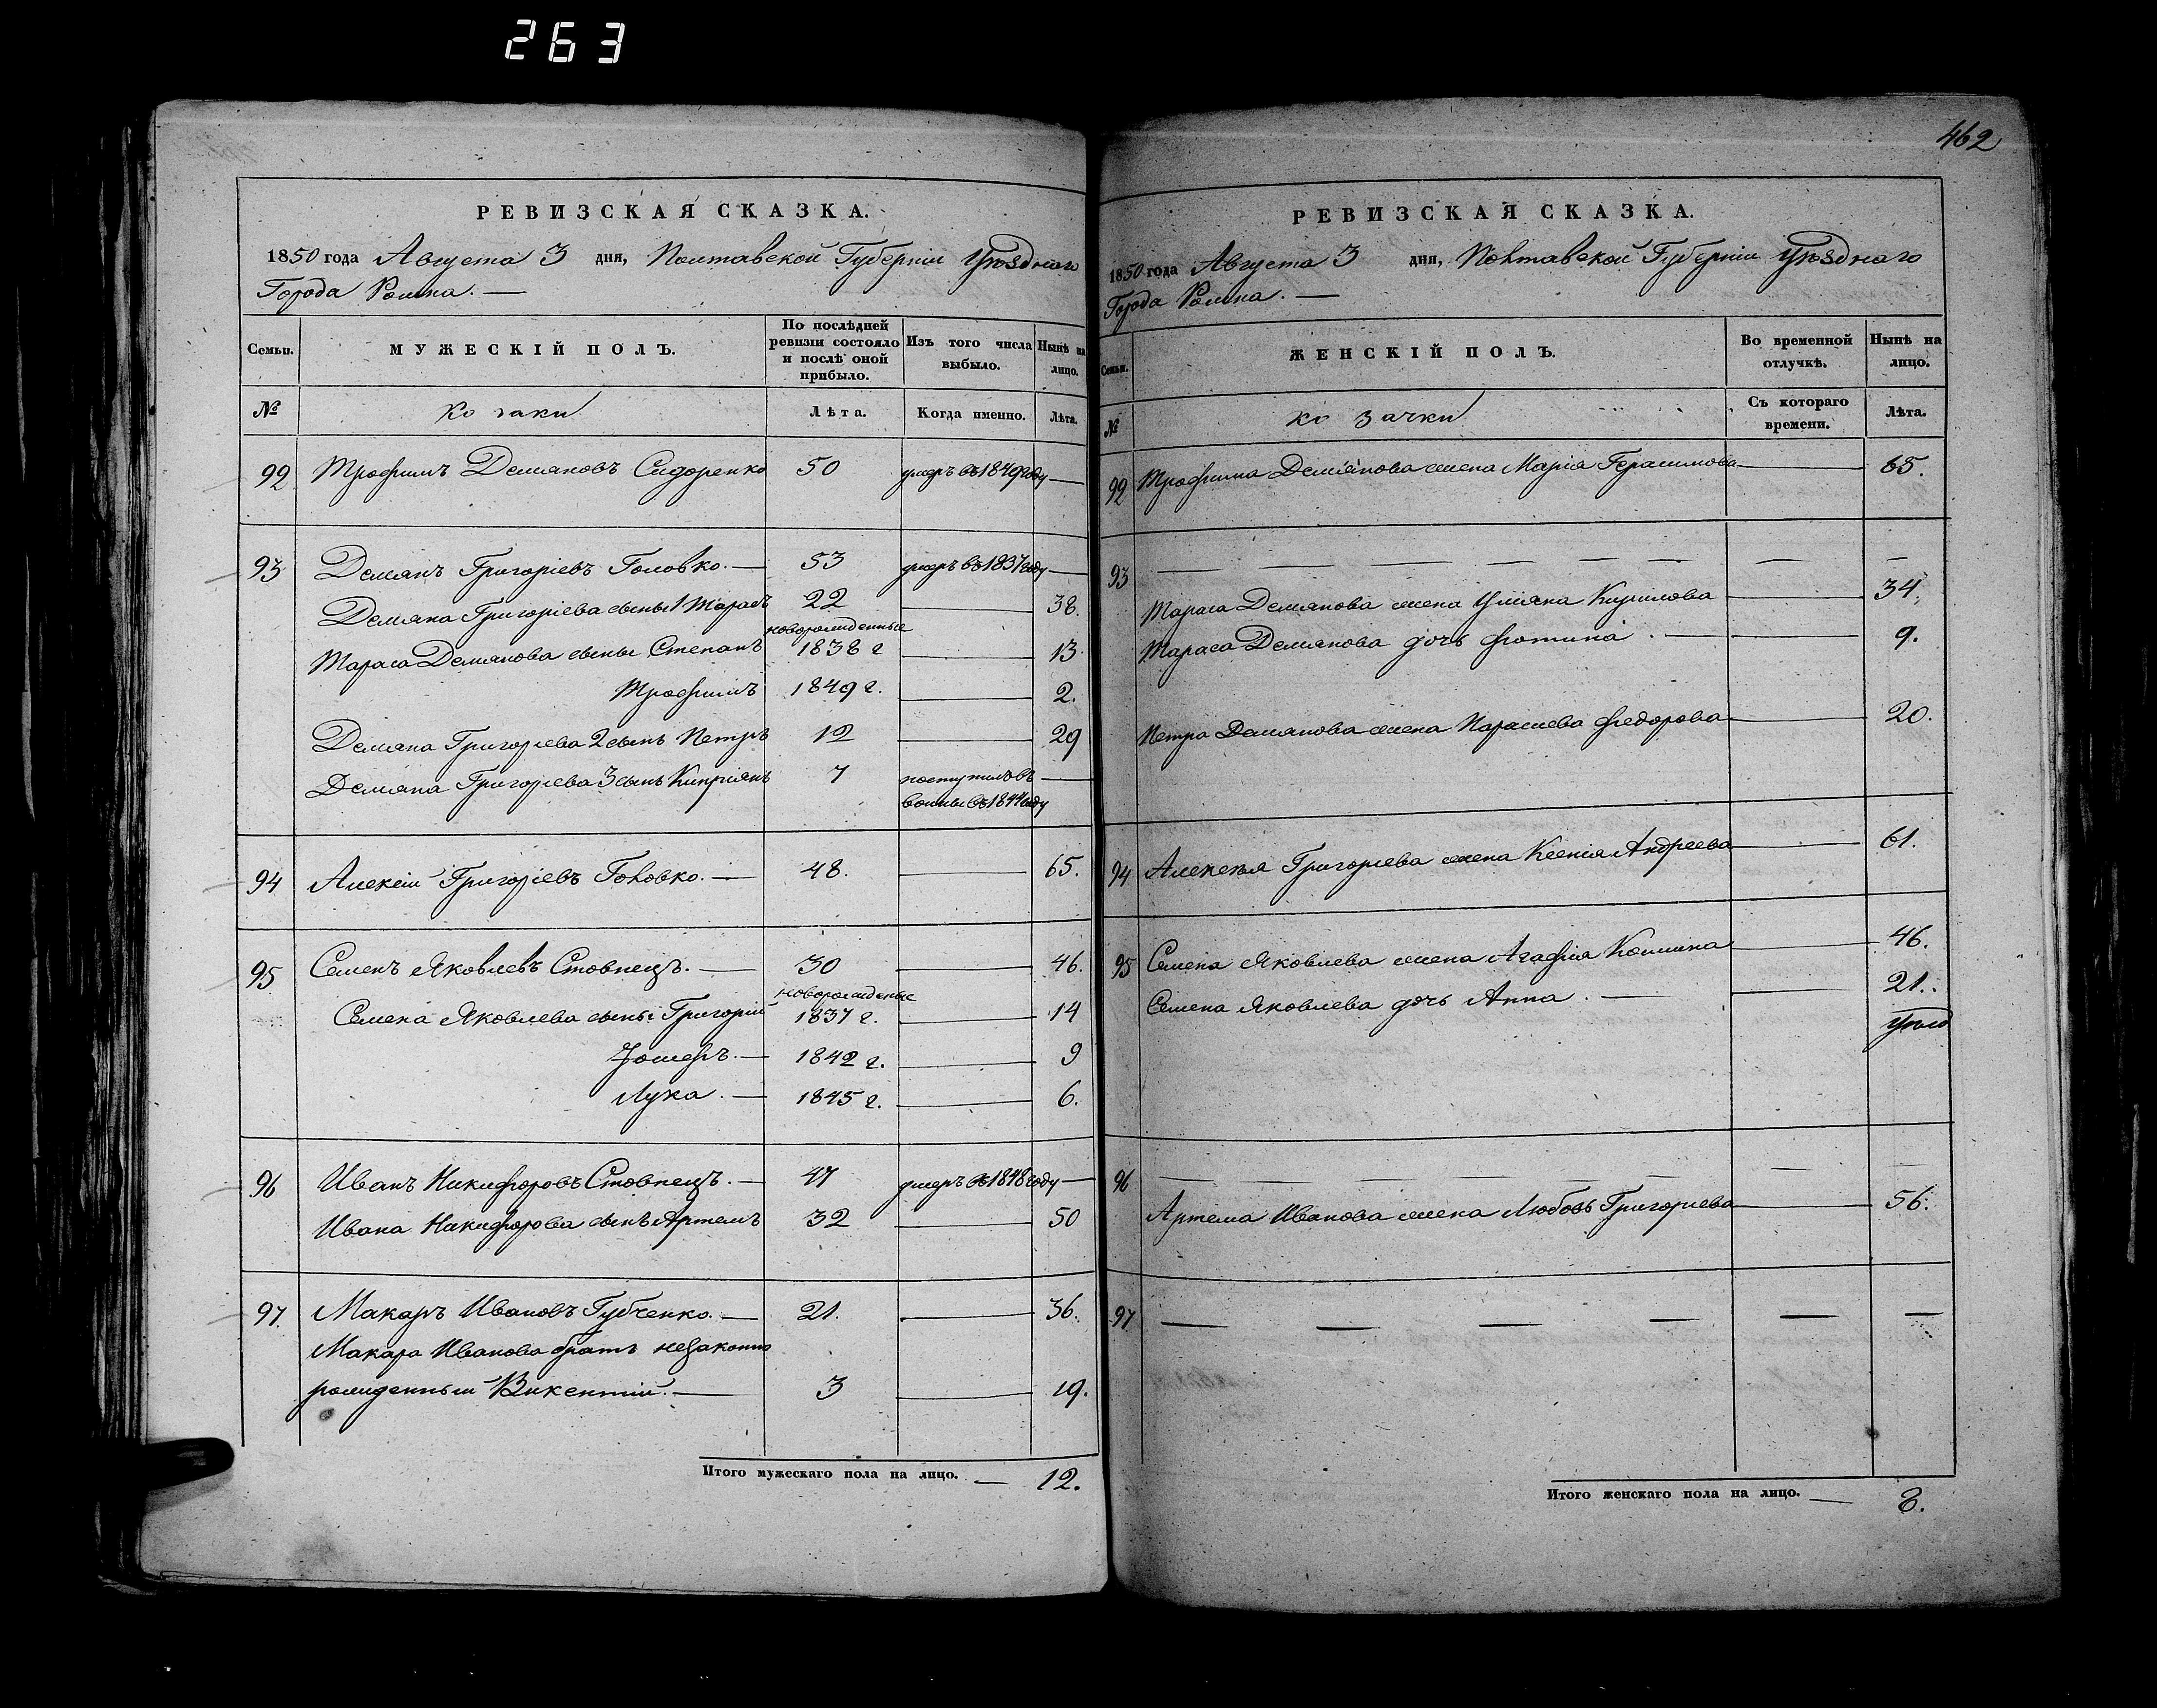 263
РЕВИЗСКАЯ СКАЗКА.
1850 года Августа 3 дня, Полтавской Губерніи Уѣзднаго
Города Ромна. —
Семьи. МУЖЕСКІЙ ПОЛЪ. По послѣдней ревизіи состояло и послѣ оной прибыло. Изъ того числа выбыло. Нынѣ на лицо.
№ козаки Лѣта. Когда именно. Лѣта.
99 Трофимъ Демяновъ Сидоренко 50 умеръ въ 1849 году —
93 Демянъ Григоріевъ Головко. — 53 умеръ въ 1837 году —
Демяна Григоріева сыны 1 Тарасъ 22 — 38.
новорожденные
Тараса Демянова сыны Степанъ 1838 г — 13.
Трофимъ 1849 г. — 2.
Демяна Григоріева 2 сынъ Петръ 12 — 29
Демяна Григоріева 3 сынъ Кипріянъ 7 поступилъ въ —
воины въ 1844 году
94 Алексій Григоріевъ Головко. — 48. — 65.
95 Семенъ Яковлевъ Стовпецъ. — 30 — 46.
новорожденые
Семена Яковлева сыны Григорій 1837 г. — 14
— 1842 г. — 9
Лука. — 1845 г. — 6.
96 Иванъ Никифоровъ Стовпецъ. — 47 умеръ въ 1848 году —
Ивана Никифорова сынъ Артемъ 32 — 50
97. Макаръ Ивановъ Губченко. — 21. — 36.
Макара Иванова братъ незаконно
рожденный Викентій. — 3 — 19.
Итого мужескаго пола на лицо. — 12.
462
РЕВИЗСКАЯ СКАЗКА.
1850 года Августа 3 дня, Полтавской Губерніи Уѣзднаго
Города Ромна. —
Семьи. ЖЕНСКІЙ ПОЛЪ. Во временной отлучкѣ. Нынѣ на лицо.
№ козачки Съ котораго времени. Лѣта.
99 Трофима Демянова жена Марія Герасимова — 65.
93 — — — — — — — —
Тараса Демянова жена Уляна Кирилова — 34.
Тараса Демянова дочь Фотина. — — 9.
Петра Демянова жена Параскева Федорова — 20.
94 Алексѣя Григоріева жена Ксенія Андреева — 61.
95 Семена Яковлева жена Агафія — 46.
Семена Яковлева дочь Анна. — — 21.
96 — — — — — — — —
Артема Иванова жена Любовь Григоріева — 56.
97 — — — — — — —
Итого женскаго пола на лицо. — 8.